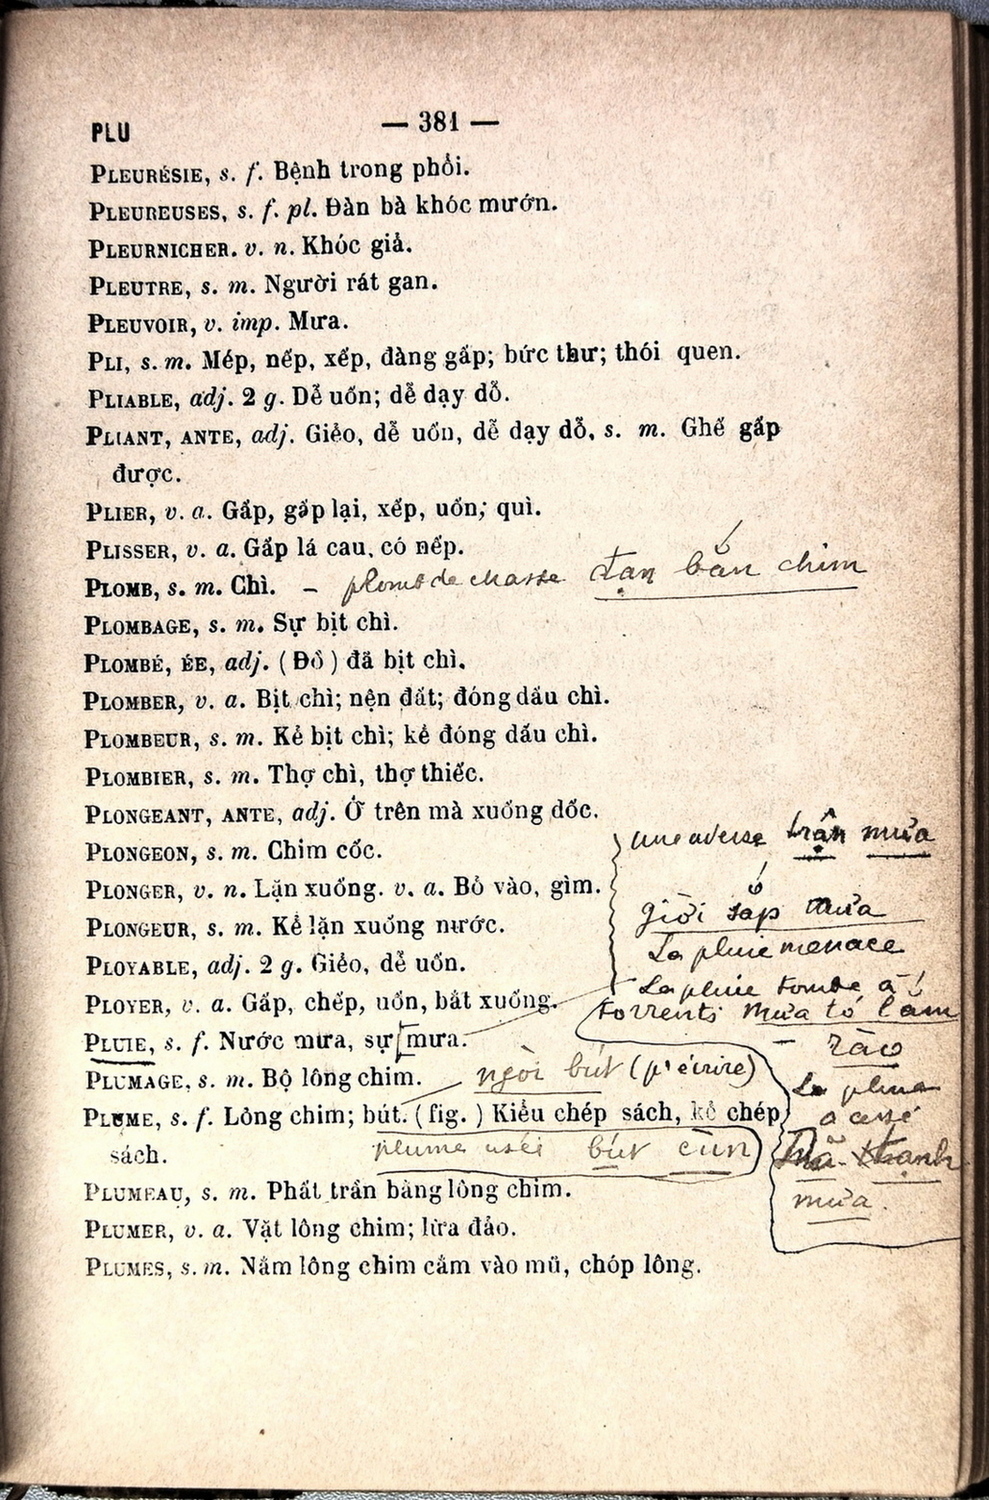 PLU — 381 —
PLEURÉSIE, s. f. Bệnh trong phổi.
PLEUREUSES, s. f. pl. Đàn bà khóc mướn.
PLEURNICHER. v. n. Khóc giả.
PLEUTRE, s. m. Người rát gan.
PLEUVOIR, v. imp. Mưa.
PLI, s. m. Mép, nếp, xếp, đàng gấp; bức thư; thói quen.
PLIABLE, adj. 2 g. Dễ uốn; dễ dạy dỗ.
PLIANT, ANTE, adj. Giẻo, dễ uốn, dễ dạy dỗ, s. m. Ghế gấp
được.
PLIER, v. a. Gấp, gấp lại, xếp, uốn; quì.
PLISSER, v. a. Gấp lá cau, có nếp.
PLOMB, s. m. Chì. – plomb de chasse đạn bắn chim
PLOMBAGE, s. m. Sự bịt chì.
PLOMBÉ, ÉE, adj. (Đồ) đã bịt chì.
PLOMBER, v. a. Bịt chì; nện đất; đóng dấu chì.
PLOMBEUR, s. m. Kẻ bịt chì; kẻ đóng dấu chì.
PLOMBIER, s. m. Thợ chì, thợ thiếc.
PLONGEANT, ANTE, adj. Ở trên mà xuống dốc.
PLONGEON, s. m. Chim cốc.
PLONGER, v. n. Lặn xuống. v. a. Bỏ vào, gìm.
PLONGEUR, s. m. Kẻ lặn xuống nước.
PLOYABLE, adj. 2 g. Giẻo, dễ uốn.
PLOYER, v. a. Gấp, chếp, uốn, bắt xuống.
PLUIE, s. f. Nước mưa, sự mưa.
PLUMAGE, s. m. Bộ lông chim.
PLUME, s. f. Lông chim; bút. (fig.) Kiểu chép sách, kẻ chép
sách.
PLUMEAU, s. m. Phất trần bằng lông chim.
PLUMER, v. a. Vặt lông chim; lừa đảo.
PLUMES, s. m. Nắm lông chim cắm vào mũ, chóp lông.
une averse trận mưa
giời sắp mưa
La pluie menace
La pluie tombe à
torrents mưa to lắm
– rào
La pluie
a cessé
mưa.
ngòi bút (pr écrire)
plume usée bút cùn